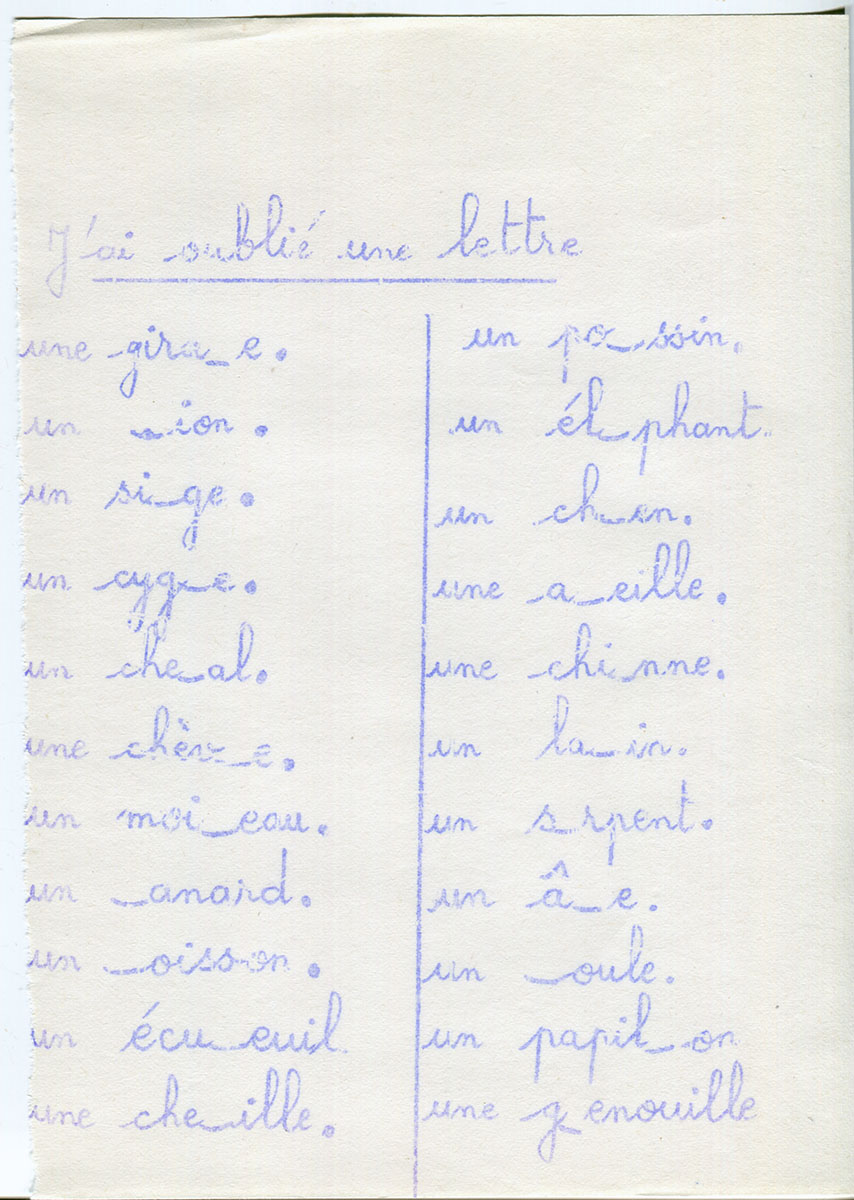 J'ai oublié une lettre
une gira_e.
un _ion.
un si_ge.
un cyg_e.
un che_al.
une chèv_e.
un moi_eau.
un _anard.
un _oisson.
un écu_euil
une che_ille.
un po_ssin.
un él_phant.
un ch_en.
une a_eille.
une chi_nne.
un la_in.
un s_rpent.
un â_e.
un _oule.
un papil_on
une g_enouille